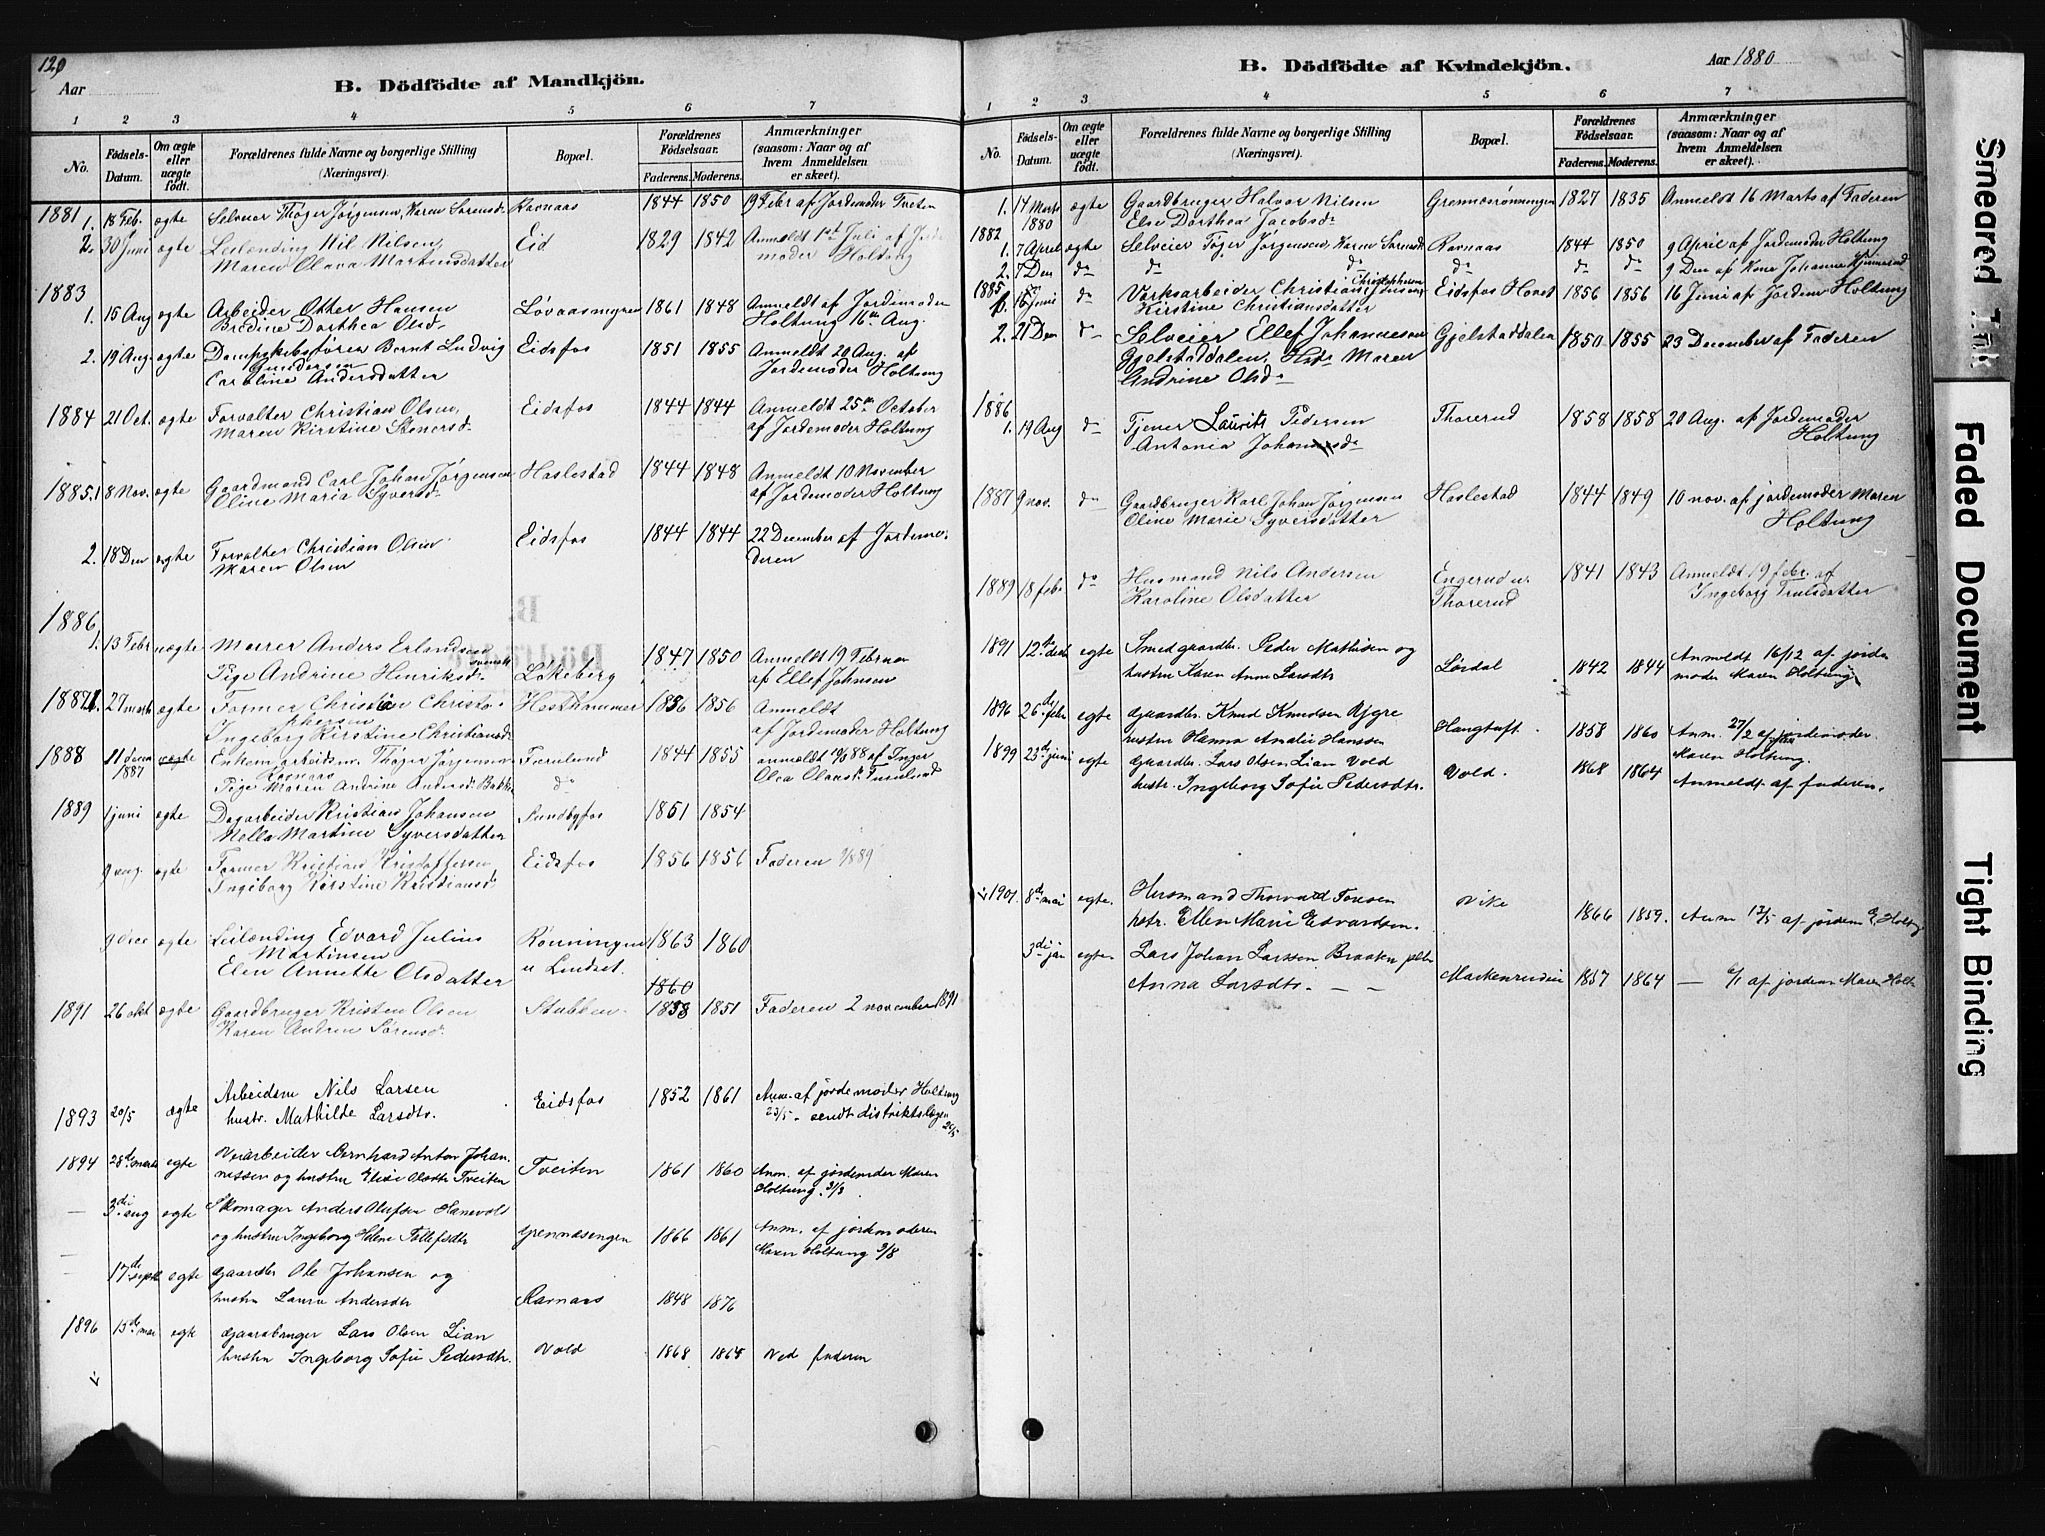 120
Aar
B. Dödfödte af Mandkjön.
1 2 3 4 5 6 7
No.
Födsels-Datum.
Om ægte eller uægte födt.
Forældrenes fulde Navne og borgerlige Stilling
(Næringsvei).
Bopæl.
Forældrenes Födselsaar.
Faderens. Moderens.
Anmærkninger
(saasom: Naar og af
hvem Anmeldelsen
er skeet).
1881 1. 18 Feb. ægte Selveier Thøger Jørgensen, Karen Sørensd. Ravnaas 1844 1850 9 Febr af Jordemoder Tveten
2. 30 Juni ægte Leilending Nil Nilsen, Eid 1829 1842 Anmeldt 1st Juli af Jorde
Maren Olava Martinsdatter moder Holtung
1883
1. 15 Aug ægte Arbeider Otter Hansen Løvaasmyren 1861 1848 Anmeldt af Jordemoder
Bredine Dorthea Olsd. Holtung 16de Aug.
2. 19 Aug. ægte Dampskibsfører Bernt Ludvig Eidsfos 1851 1855 Anmeldt 20 Aug. af
Gundersen Jordemoder Holtung
Caroline Andersdatter
1884 21 Oct. ægte Forvalter Christian Olsen, Eidsfos 1844 1844 Anmeldt 25de October
Maren Kirstine Stenersd. af Jordemoder Holtung
1885. 1 8 Nov. ægte Gaardmand Carl Johan Jørgensen Haslestad 1844 1848 Anmeldt 10 November
Oline Maria Syversd. af Jordemoder Holtung
2. 18 Dec ægte Forvalter Christian Olsen Eidsfos 1844 1844 22 December af Jordemo-
Maren Olsen deren
1886
1. 13 Febr uægte Murer Anders Erlandsen 1847 1850 Anmeldt 19 Februar
svensk
Pige Andrine Henriksd. Løkeberg af Ellef Johnsen
1887 1. 27 marts ægte Former Christian Christo- Hesthammer 1856 1856 Anmeldt
phersen af Jordemoder Holtung
Ingeborg Kirstine Christiansd.
1888 11 decem 1887 uægte Enkem. arbeidsm. Thøger Jørgensen Furulund 1844 1855 anmeldt 10/3 88 af Inger
Ravnaas Olea Olausd. Furulund
Pige Maren Andrine Andersd. Bakke do
1889 1 juni ægte Dagarbeider Kristian Johansen Sundbyfos 1861 1854
Mella Martine Syversdatter
9 aug. ægte Former Kristian Kristoffersen Eidsfos 1856 1856 Faderen
Ingeborg Kirstine Kristiansd.
9 dec ægte Leilending Edvard Julius Rønningen 1863 1860
Martinsen u Lindset.
Elen Annette Olsdatter
1860
1891 26 okt ægte Gaardbruger Kristen Olsen Stubben 1858 1851 Faderen 2 november 1891
Karen Andrea Sørensd.
1893 20/5 ægte Arbeidsm Nils Larsen Eidsfos 1852 1861 Anm. af jordemoder Holtung
hustr. Mathilde Larsdtr. 23/5 - sendt distriktslægen 26/5
1894 28d marts egte Veiarbeider Bernhard Anton Johan- Tveiten 1861 1860 Anm. af jordemoder Maren
nessen og hustru Elise Olsdtr Tveiten Holtung. 3/3
3di aug egte Skomager Anders Olufsen Hanevold
og hustru Ingeborg Helene Tollefsdtr Grennæsengen 1866 1861 Anm. af jordemoderen
Maren Holtung 9/8
17de septb egte Gaardbr Ole Johansen og
hustru Laura Andersdtr Ravnaas 1848 1876
1896 15de mai egte Gaardbruger Lars Olsen Lian
hustru Ingeborg Sofie Pedersdtr. Vold 1868 1864 Ved faderen
B. Dödfödte af Kvindekjön.
Aar 1880
1 2 3 4 5 6 7
No.
Födsels-Datum.
Om ægte eller uægte födt.
Forældrenes fulde Navne og borgerlige Stilling
(Næringsvei).
Bopæl.
Forældrenes Födselsaar.
Faderens. Moderens.
Anmærkninger
(saasom: Naar og af
hvem Anmeldelsen
er skeet).
1. 14 Marts 1880 ægte Gaardbruger Halvor Nilsen Grennesrønningen 1827 1835 Anmeldt 16 Marts af Faderen
Else Dorthea Jacobsd.
1882
1. 7 April ægte Selveier Tøger Jørgensen, Karen Sørensd. Ravnaas 1844 1850 9 April af Jordemoder Holtung
2. 7 Dec do do do do do do 9 Dec af Kone Johanne
1885
1. 15 Juni do Værksarbeider Christian Christophersen Eidsfos Hoved 1856 1856 16 Juni af Jordem Holtung
Kirstine Christiansdatter
2. 21 Dec do Selveier Ellef Johannesen Gjelstaddalen 1850 1855 23 December af Faderen
Gjelstaddalen, Hst. Maren
Andrine Olsd.
1886
1. 19 Aug do Tjener Laurits Pedersen Thorerud 1858 1858 20 Aug. af Jordemoder
Antonia Johansd. Holtung
1887 9 nov. do Gaardbruger Karl Johan Jørgensen Haslestad 1844 1849 10 nov. af jordemoder Maren
Oline Marie Syversdatter Holtung
1889 18 febr do Husmand Nils Andersen Engerud u. 1841 1843 Anmeldt 19 febr. af
Karoline Olsdatter Thorerud Ingeborg Trulsdatter
1891 12te decb egte Smed gaardbr. Peder Mathisen og Lørdal 1842 1844 Anmeldt 16/12 af jorde
hustru Karen Anne Larsdtr moder Maren Holtung
1896 26de febr egte Gaardbr. Knud Knudsen Bjgre Haugtuft 1858 1860 Anm. 27/2 af jordemoder
hustru Hanna Amalie Hanssen Maren Holtung.
1899 23d juni egte Gaardbr. Lars Olsen Lian Vold Vold. 1868 1864 Anmeldt af faderen.
hustr. Ingeborg Sofie Pedersdtr.
1901 8de mai egte. Husmand Thorvald Toresen Vike 1866 1859. Anm 12/5 af jordem E. Holtung
hstr. Ellen Marie Edvardsen.
3di jan egte Lars Johan Larssen Braaten
Anna Larsdtr. Markenrudeie 1857 1864 — 6/1 af jordem Maren Holt
Smeared Ink
Faded Document
Tight Binding